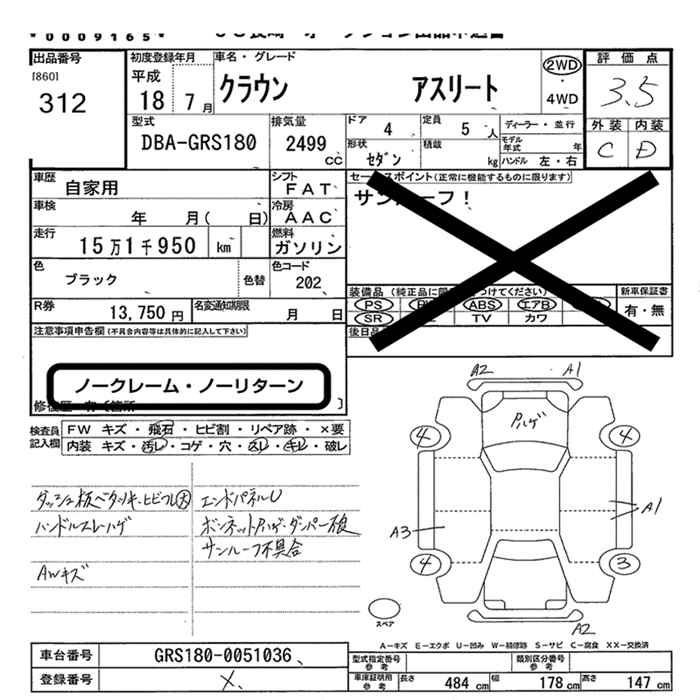 0009165
出品番号
[860]
312
初度登録年月
平成
18 7月
車名・グレード
クラウン アスリート
2WD
4WD
評価点
3.5
外装 内装
C D
型式
DBA-GRS180
排気量
2499
cc
ドア 4
形状 セダン
定員 5 人
積載 kg
ディーラー・並行
モデル年式 年
ハンドル 左・右
車歴 自家用
シフト
FAT
車検 年 月( 日)
冷房
AAC
走行 15万1千950 km
燃料
ガソリン
色 ブラック
色替
色コード
202
R券 13,750円
名変通知期限 月 日
セールスポイント(正常に機能するものに限ります)
サンルーフ!
新車保証書
有・無
PS ABS エアB
SR TV カワ
注意事項申告欄(不具合内容等は具体的に記入して下さい)
ノークレーム・ノーリターン
検査員記入欄
FW キズ・飛石・ヒビ割・リペア跡・×要
内装 キズ・汚レ・コゲ・穴・スレ・キレ・破レ
ダッシュ板ベタツキ・ヒビワレ大
ハンドルスレ・ハゲ
AWキズ
エンドパネルU
ボンネットPハゲ・ダンパー不良
サンルーフ不具合
A2 A1
Pハゲ
4 4
A1
A3
4 3
A2
スペア
A-キズ E-エクボ U-凹み W-補修跡 S-サビ C-腐食 XX-交換済
車台番号 GRS180-0051036
登録番号 ×
型式指定番号 参考
類別区分番号 参考
車庫証明用 参考
長さ 484 cm
幅 178 cm
高さ 147 cm